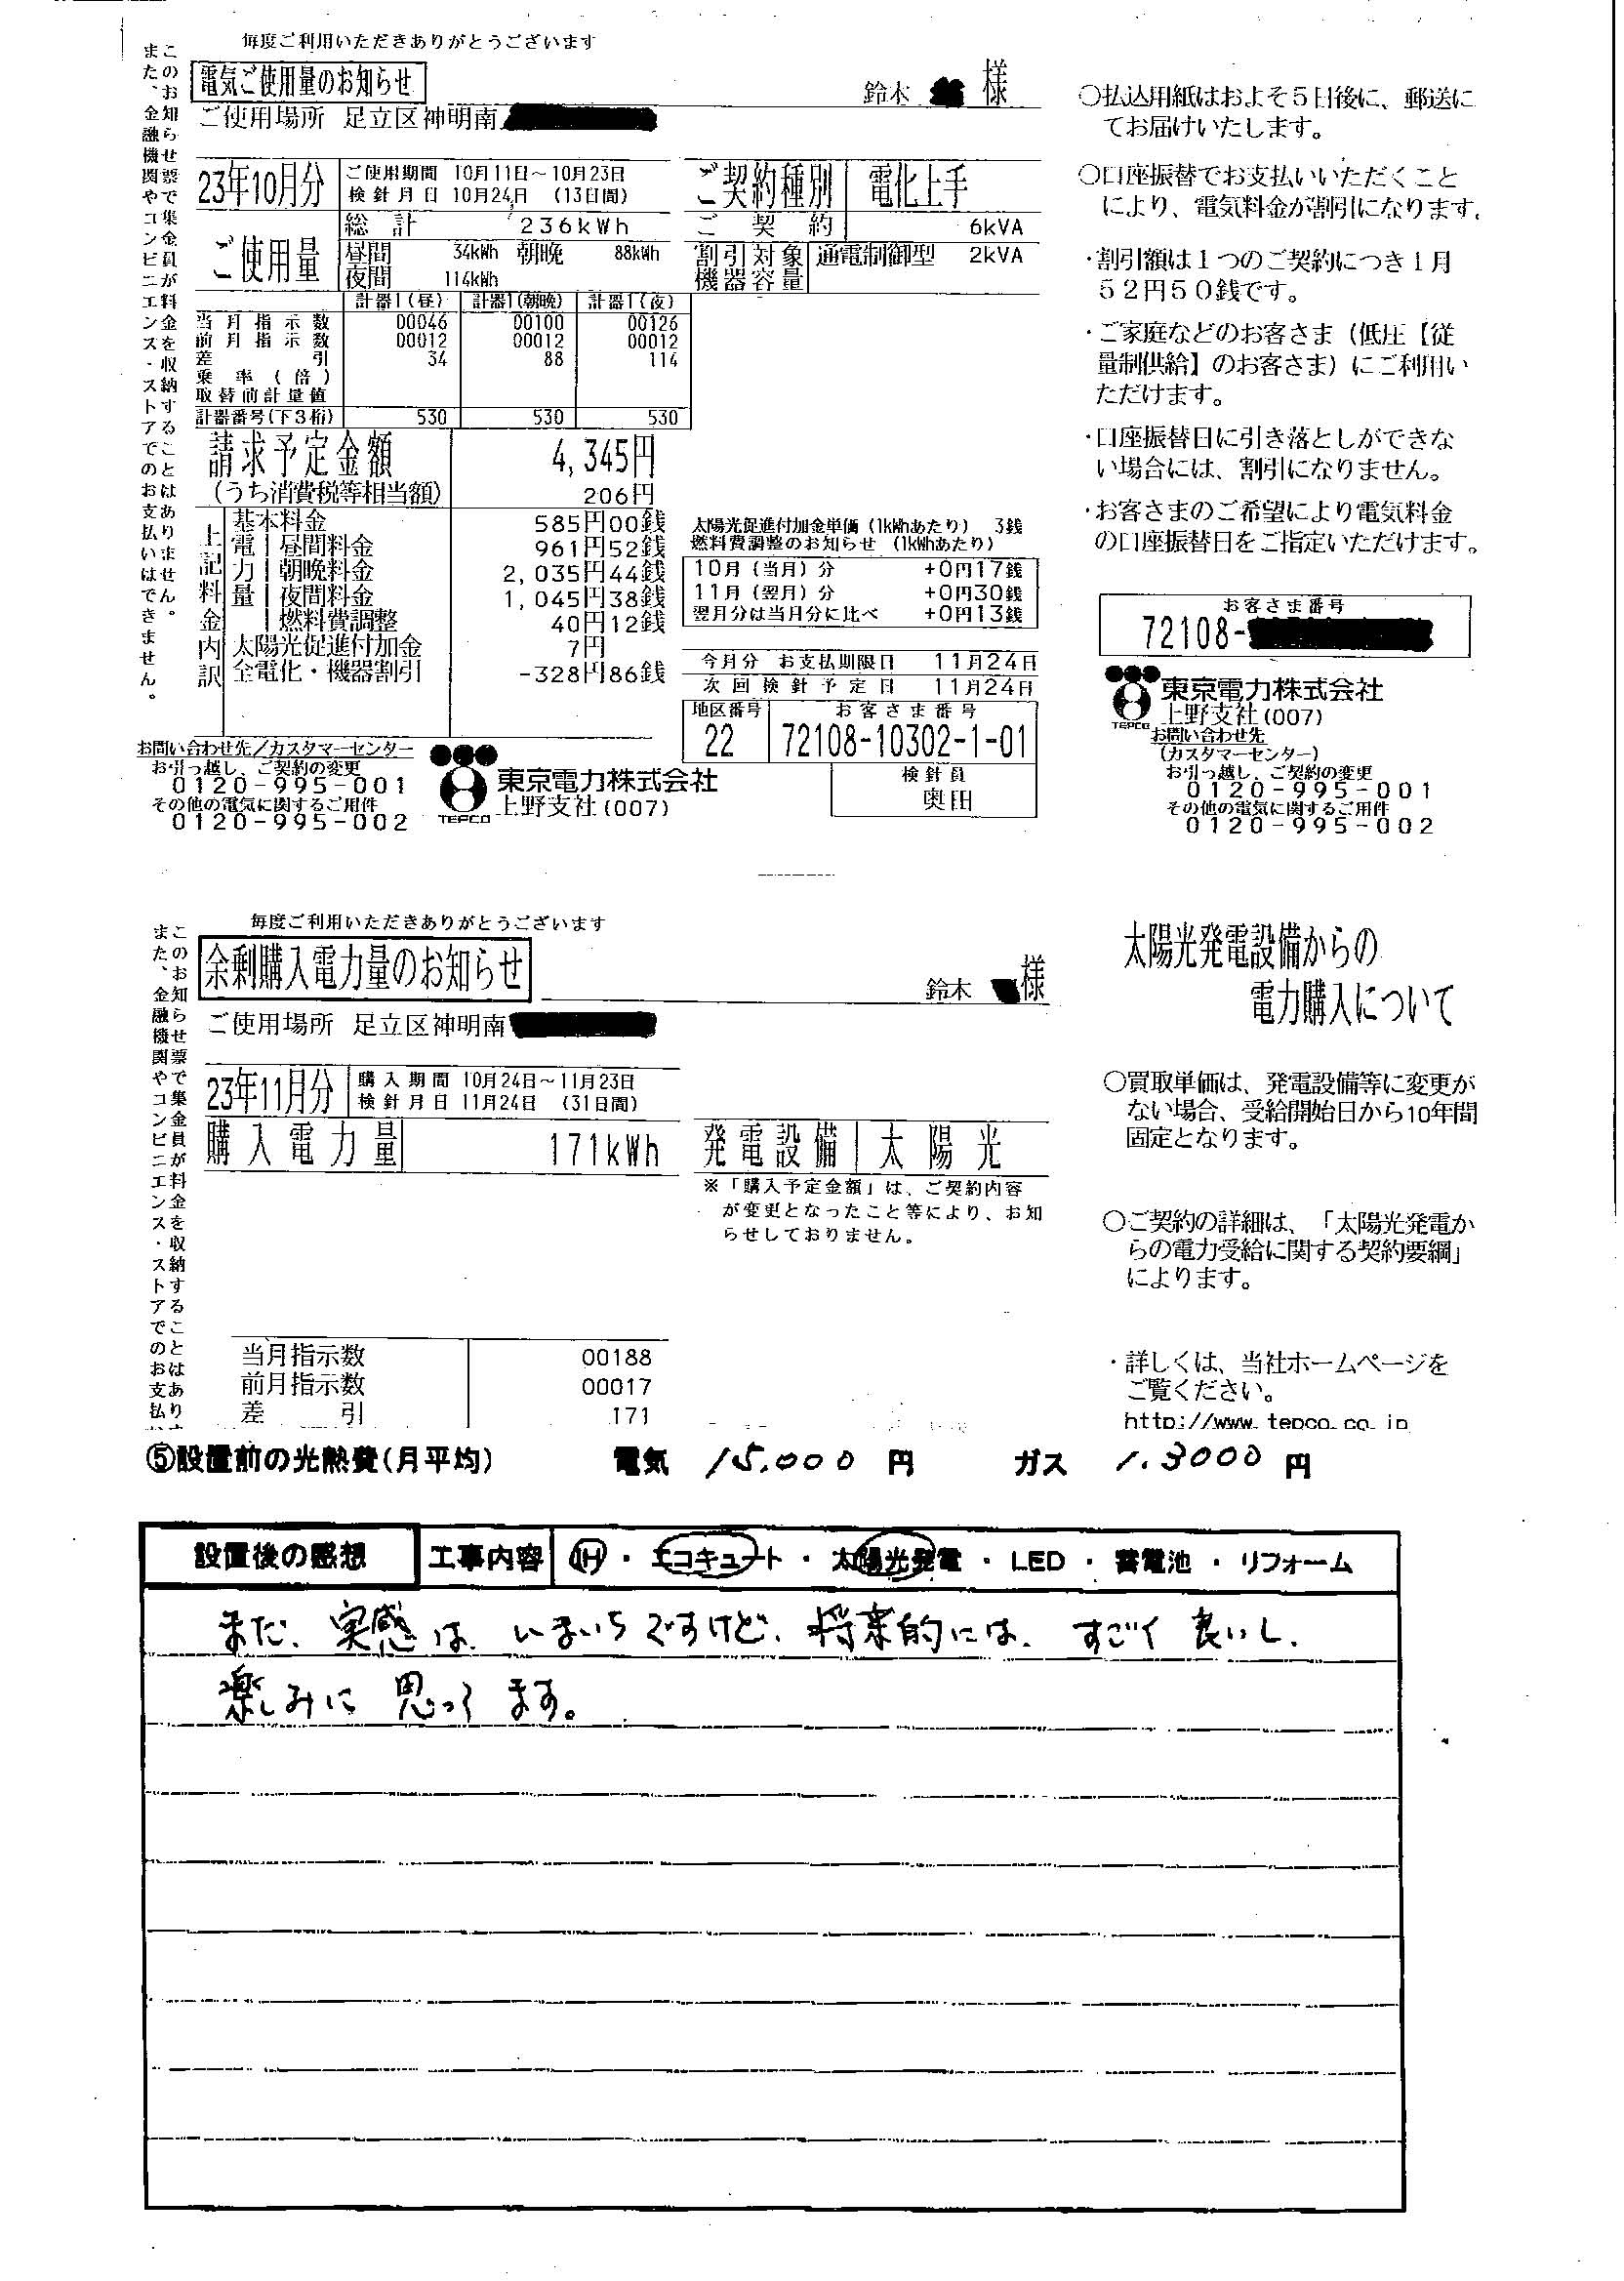 毎度ご利用いただきありがとうございます
電気ご使用量のお知らせ
鈴木 様
ご使用場所 足立区神明南
このお知らせ票で集金員が料金を収納することはありません。
また、金融機関やコンビニエンス・ストアでのお支払いはできません。
23年10月分
ご使用期間 10月11日～10月23日
検針月日 10月24日 (13日間)
ご契約種別 電化上手
ご使用量
総計 236kWh
昼間 34kWh 朝晩 88kWh
夜間 114kWh
ご契約 6kVA
割引対象機器容量 通電制御型 2kVA
計器1(昼) 計器1(朝晩) 計器1(夜)
当月指示数 00046 00100 00126
前月指示数 00012 00012 00012
差引 34 88 114
乗率(倍)
取替前計量値
計器番号(下3桁) 530 530 530
請求予定金額 4,345円
(うち消費税等相当額) 206円
上記料金内訳
基本料金 585円00銭
電力量 昼間料金 961円52銭
朝晩料金 2,035円44銭
夜間料金 1,045円38銭
燃料費調整 40円12銭
太陽光促進付加金 7円
全電化・機器割引 -328円86銭
太陽光促進付加金単価(1kWhあたり) 3銭
燃料費調整のお知らせ (1kWhあたり)
10月(当月)分 +0円17銭
11月(翌月)分 +0円30銭
翌月分は当月分に比べ +0円13銭
今月分 お支払期限日 11月24日
次回検針予定日 11月24日
地区番号 お客さま番号
22 72108-10302-1-01
検針員
奥田
お問い合わせ先/カスタマーセンター
お引っ越し、ご契約の変更
0120-995-001
その他の電気に関するご用件
0120-995-002
TEPCO
東京電力株式会社
上野支社(007)
○払込用紙はおよそ5日後に、郵送に
てお届けいたします。
○口座振替でお支払いいただくこと
により、電気料金が割引になります。
・割引額は1つのご契約につき1月
52円50銭です。
・ご家庭などのお客さま(低圧【従
量制供給】のお客さま)にご利用い
ただけます。
・口座振替日に引き落としができな
い場合には、割引になりません。
・お客さまのご希望により電気料金
の口座振替日をご指定いただけます。
お客さま番号
72108-
TEPCO
東京電力株式会社
上野支社(007)
お問い合わせ先
(カスタマーセンター)
お引っ越し、ご契約の変更
0120-995-001
その他の電気に関するご用件
0120-995-002
毎度ご利用いただきありがとうございます
余剰購入電力量のお知らせ
鈴木 様
ご使用場所 足立区神明南
このお知らせ票で集金員が料金を収納することはあり
また、金融機関やコンビニエンス・ストアでのお支払い
23年11月分
購入期間 10月24日～11月23日
検針月日 11月24日 (31日間)
購入電力量 171kWh
発電設備 太陽光
※「購入予定金額」は、ご契約内容
が変更となったこと等により、お知
らせしておりません。
当月指示数 00188
前月指示数 00017
差引 171
太陽光発電設備からの
電力購入について
○買取単価は、発電設備等に変更が
ない場合、受給開始日から10年間
固定となります。
○ご契約の詳細は、「太陽光発電か
らの電力受給に関する契約要綱」
によります。
・詳しくは、当社ホームページを
ご覧ください。
http://www.tepco.co.jp
⑤設置前の光熱費(月平均) 電気 15.000 円 ガス 1.3000 円
設置後の感想 工事内容 IH・エコキュート・太陽光発電・LED・蓄電池・リフォーム
まだ、実感は、いまいちですけど、将来的には、すごく良いし、
楽しみに思ってます。